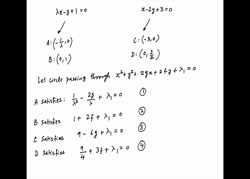 λx-y+1=0
x-2y+3=0
A: (-1/λ, 0)
C: (-3,0)
B: (0,1)
D: (0, 3/2)
Let circle passing through x²+y²+2gx+2fy+λ₁=0
A satisfies: 1/λ² - 2g/λ + λ₁=0 ①
B satisfies 1+2f+λ₁=0 ②
C satisfies 9-6g+λ₁=0 ③
D satisfies 9/4+3f+λ₁=0 ④